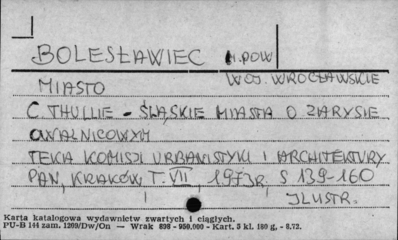 BOLESŁAWIEC M. POW
WOJ. WROCŁAWSKIE
MIASTO
C. THULLIE - ŚLĄSKIE MIASTA O ZARYSIE
OWALNICOWYM
TEKA KOMISJI URBANISTYKI I ARCHITEKTURY
PAN, KRAKÓW T. VII, 1973R. S 139-160
ILUSTR.
Karta katalogowa wydawnictw zwartych i ciągłych.
PU-B 144 zam. 1209/Dw/On — Wrak 898 - 950.000 - Kart. 5 kl. 180 g, - 8.72.